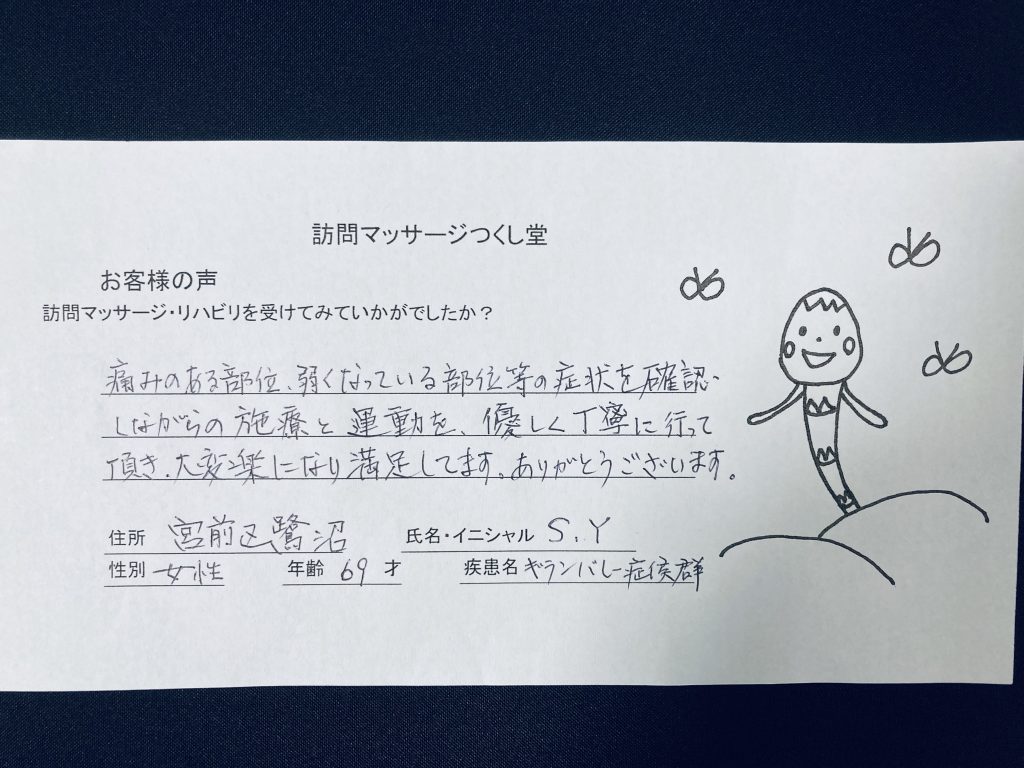 訪問マッサージつくし堂
お客様の声
訪問マッサージ・リハビリを受けてみていかがでしたか？
痛みのある部位、弱くなっている部位等の症状を確認
しながらの施療と運動を、優しく丁寧に行って
頂き、大変楽になり満足してます。ありがとうございます。
住所 宮前区鷺沼 氏名・イニシャル S.Y
性別 女性 年齢 69 才 疾患名 ギランバレー症候群